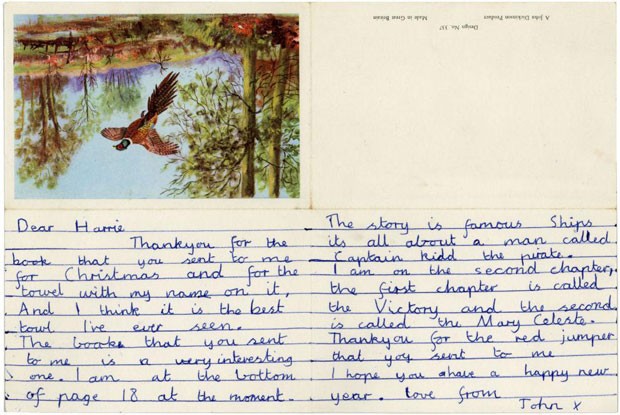 Design No.
A John Dickinson Product Made in Great Britain
Dear Harrie
Thankyou for the
book that you sent to me
for Christmas and for the
towel with my name on it,
And I think it is the best
towl I've ever seen.
The that you sent
to me is a very interesting
one. I am at the bottom
of page 18 at the moment.
The story is famous Ships
its all about a man called
Captain Kidd the pirate.
I am on the second chapter,
the first chapter is called
the Victory and the second
is called the Mary Celeste.
Thankyou for the red jumper
that you sent to me
I hope you ahave a happy new
year. love from
John x